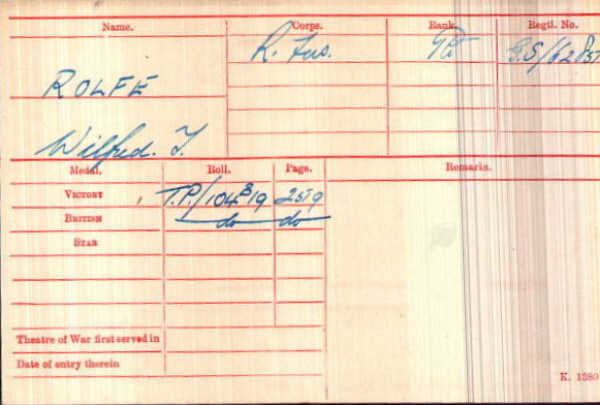 Name. Corps. Rank. Regtl. No.
R. Fus. Pte G.S/62
ROLFE
Wilfred. J.
Medal. Roll. Page. Remarks.
VICTORY T.P./104B19 2519
BRITISH do do
STAR
Theatre of War first served in
Date of entry therein
K. 1380